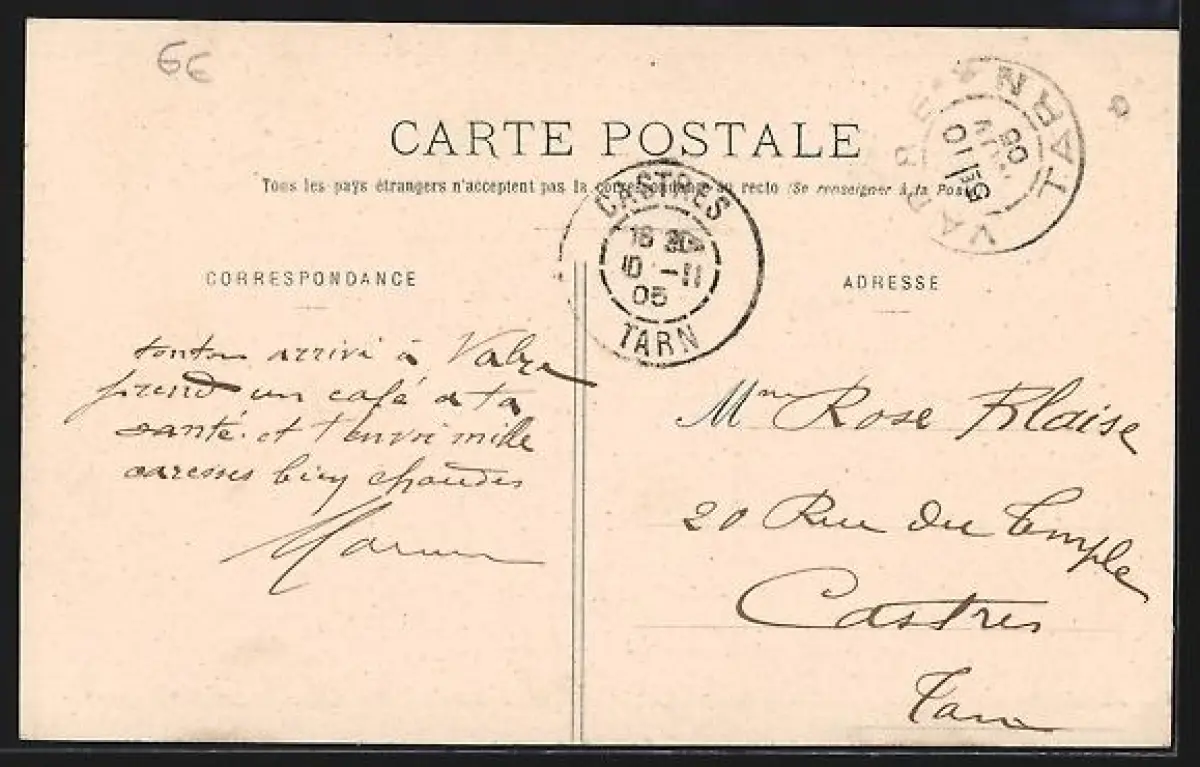 6€
CARTE POSTALE
Tous les pays étrangers n'acceptent pas la correspondance au recto (Se renseigner à la Poste)
CASTRES
18 30
10 -11
05
TARN
VABRE
TARN
10
05
CORRESPONDANCE
tonton arrivé à Vabre
prend un café a ta
santé. et t'envoi mille
caresses bien chaudes
ADRESSE
Mme Rose Blaise
20 Rue du Temple
Castres
Tarn